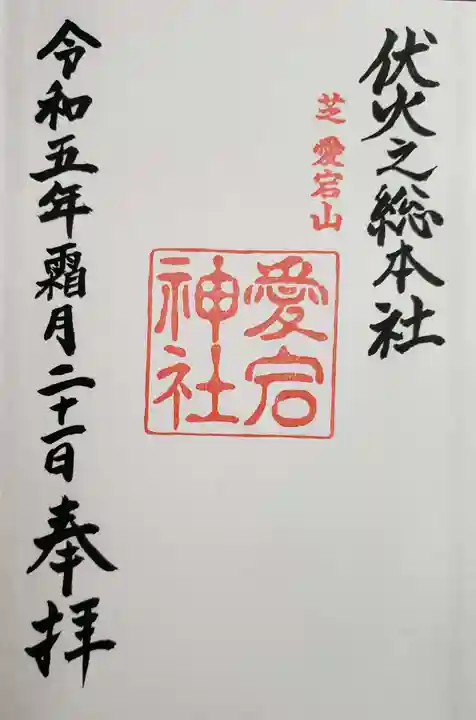 伏火之総本社
芝 愛宕山
愛宕
神社
令和五年霜月二十一日奉拝